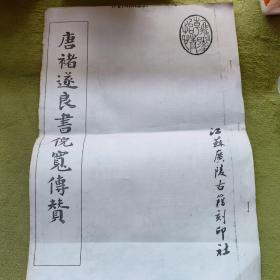 唐褚遂良書倪寬傳贊
江蘇廣陵古籍刻印社